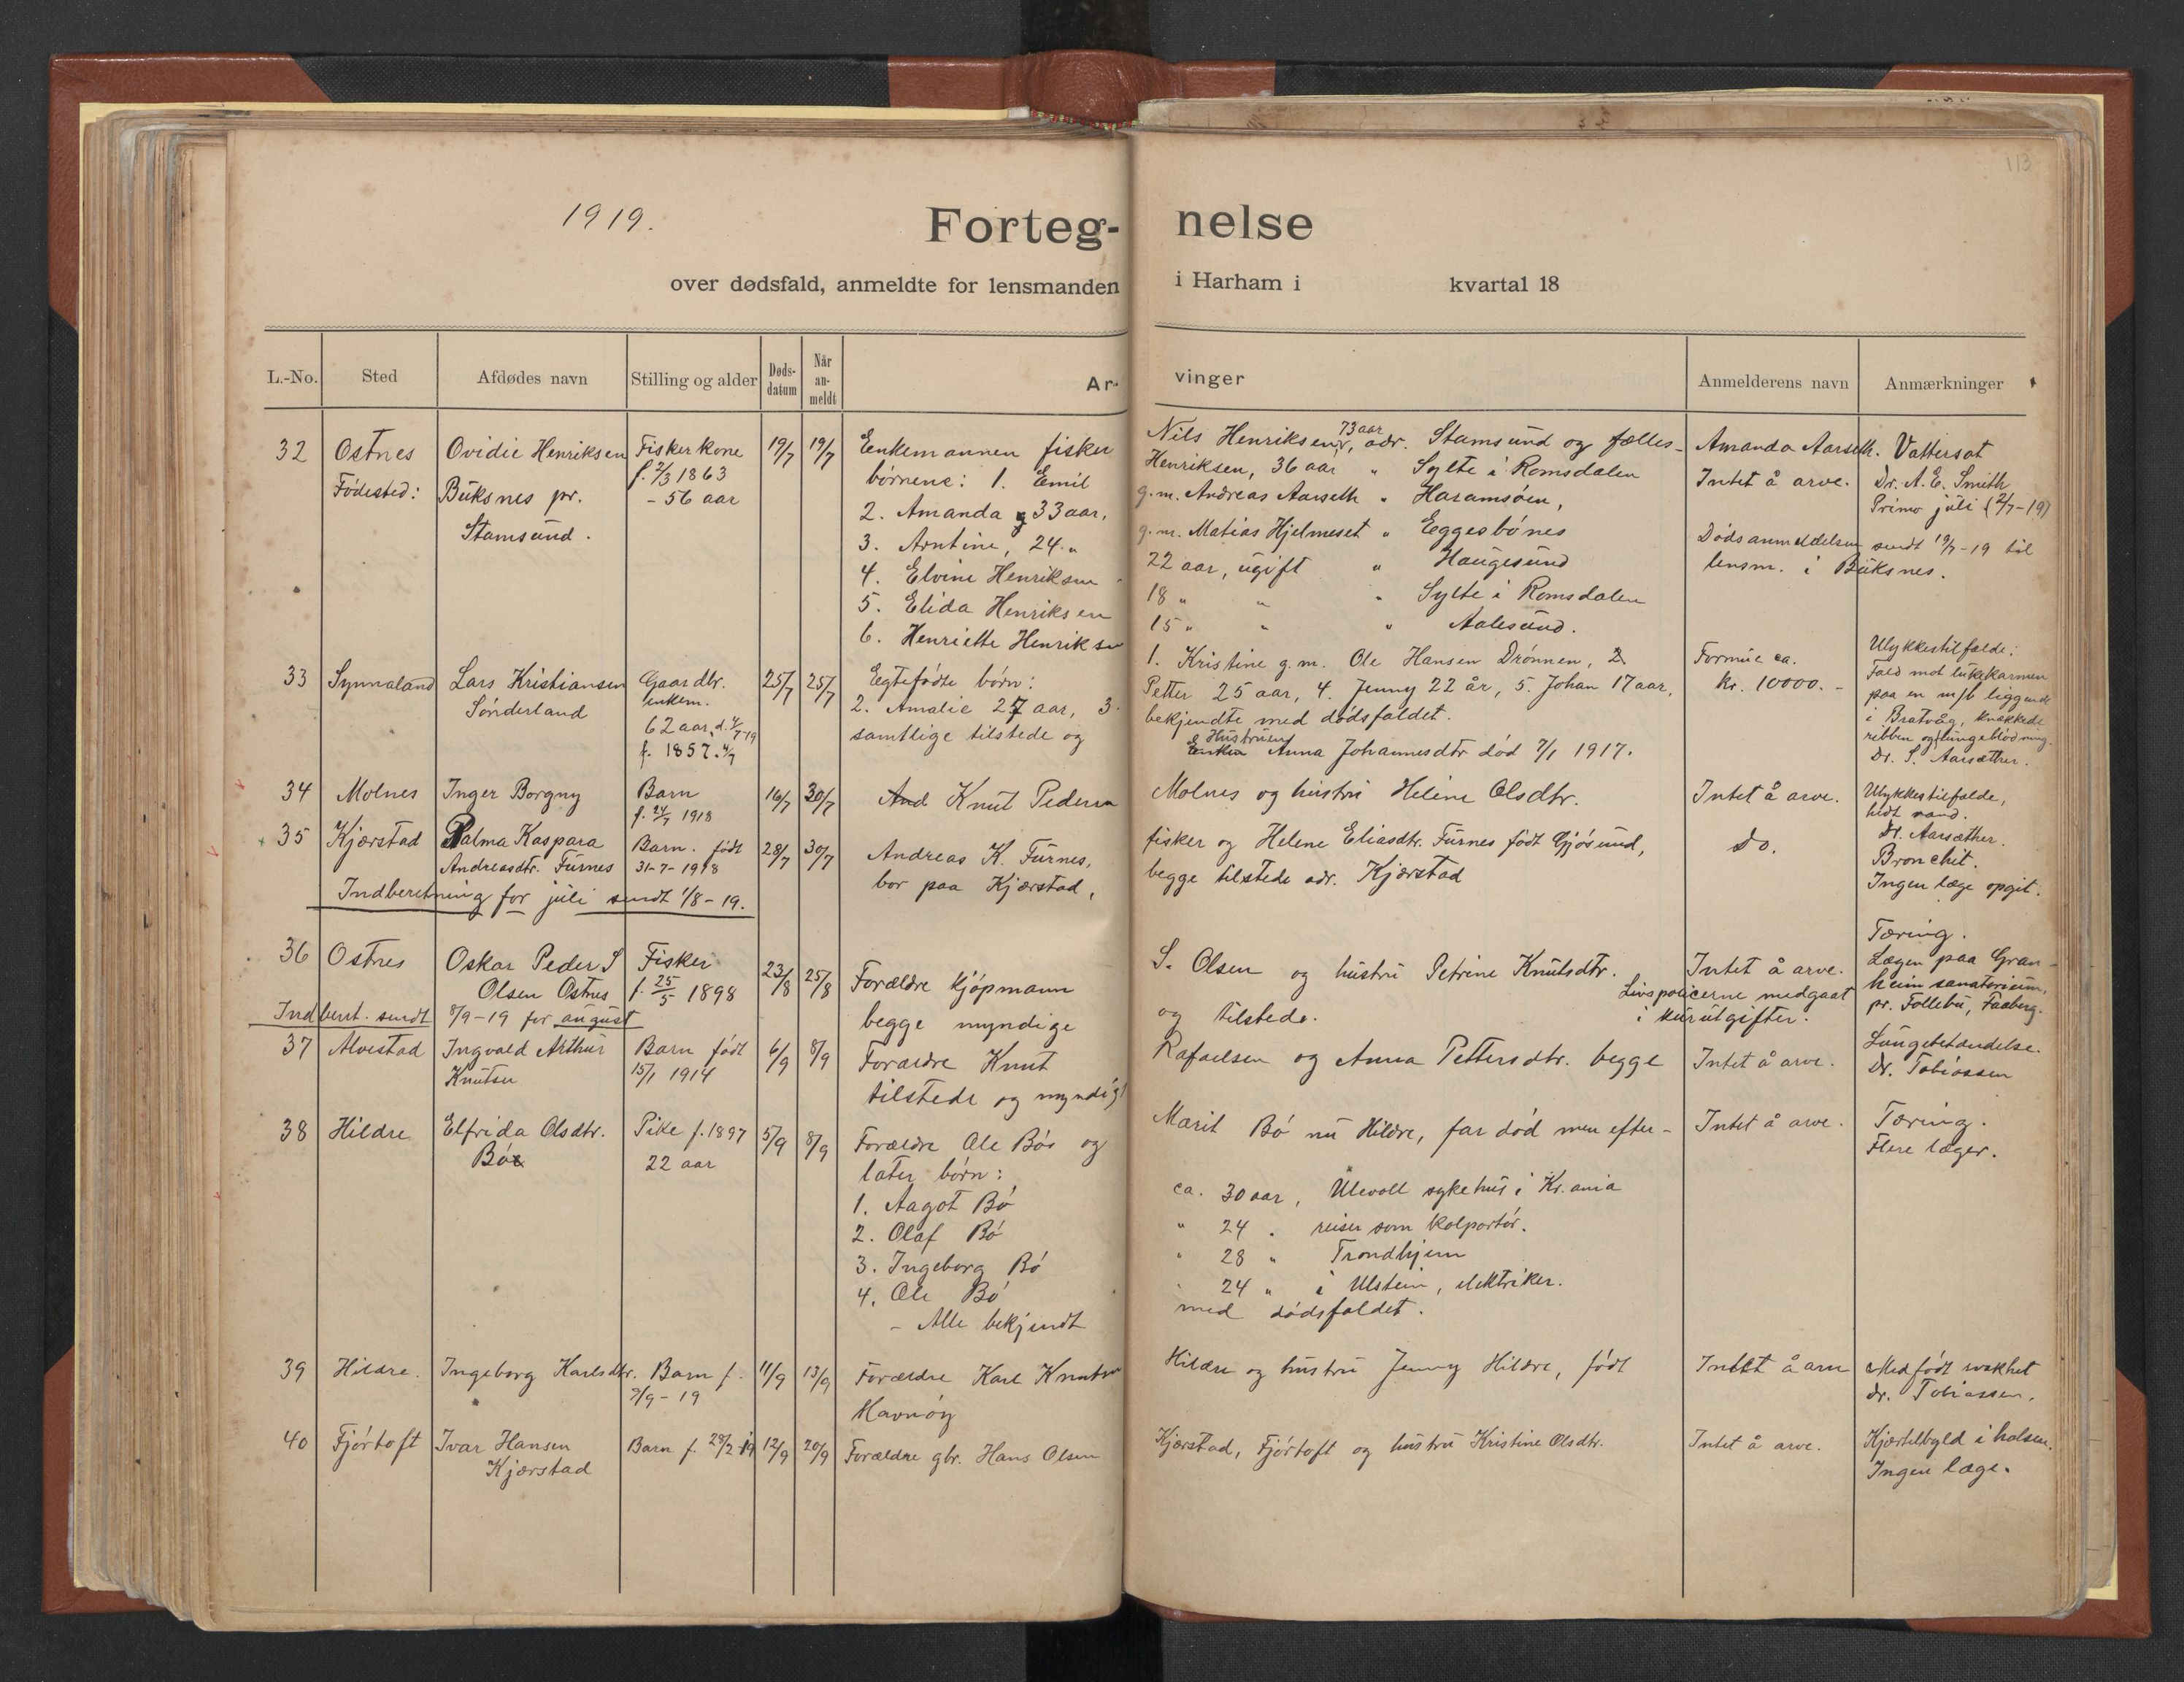 113
1919.
Forteg- nelse
over dødsfald, anmeldte for lensmanden i Harham i kvartal 18
L.-No. Sted Afdødes navn Stilling og alder Døds-datum Når an-meldt Ar- vinger Anmelderens navn Anmærkninger
32 Ostnes Ovidie Henriksen Fiskerkone 19/7 19/7 Enkemannen fisker Nils Henriksen, 73 aar adr. Stamsund og fælles- Amanda Aarseth. Vattersot
Fødested: Buksnes pr. f. 2/3 1863 børnene: 1. Emil Henriksen, 36 aar " Sylte i Romsdalen Intet å arve. Dr. A. E. Smith
Stamsund. - 56 aar 2. Amanda 33 aar, g.m. Andreas Aarseth " Haramsøen, Primo juli (2/7-19)
3. Arntine, 24 " g.m. Matias Hjelmeset " Eggesbønes Dødsanmeldelsen sendt 19/7-19 til
4. Elvine Henriksen 22 aar, ugift " Haugesund lensm. i Buksnes.
5. Elida Henriksen 18 " " " Sylte i Romsdalen
6. Henriette Henriksen 15 " " " Aalesund.
33 Synnaland Lars Kristiansen Gaardbr. 25/7 25/7 Egtefødte børn: 1. Kristine g.m. Ole Hansen Drønnen, 2 Formue ca. Ulykkestilfælde:
Sønderland enkem. 2. Amalie 27 aar, 3. Petter 25 aar, 4. Jenny 22 år, 5. Johan 17 aar, kr. 10000.- Fald mot lukekarmen
62 aar, samtlige tilstede og bekjendte med dødsfaldet. paa en m/b liggende
f. 1857. Enken Hustruen Anna Johannesdtr død 7/1 1917. i Bratvåg, knækkede
ribben og lungeblødning.
Dr. S. Aarsæther.
34 Molnes Inger Borgny Barn 16/7 30/7 And Knut Pedersen Molnes og hustru Heline Olsdtr. Intet å arve. Ulykkestilfælde,
f. 24/7 1918 hedt vand.
Dr. Aarsæther.
35 Kjærstad Palma Kaspara Barn. født 28/7 30/7 Andreas K. Furnes, fisker og Helene Eliasdtr. Furnes født Gjøsund, Do. Bronchit.
Andreasdtr. Furnes 31-7-1918 bor paa Kjærstad, begge tilstede adr. Kjærstad Ingen læge opgit.
Indberetning for juli sendt 1/8-19.
36 Ostnes Oskar Peder S Fisker 23/8 25/8 Forældre kjøpmann S. Olsen og hustru Petrine Knutsdtr. Intet å arve. Tæring.
Olsen Ostnes f. 25/5 1898 begge myndige og tilstede. Livspolicerne medgaat Lægen paa Gran-
i kurutgifter. heim sanatorium,
pr. Follebu, Faaberg.
Indberet. sendt 8/9-19 for august
37 Alvestad Ingvald Arthur Barn født 6/9 8/9 Forældre Knut Rafaelsen og Anna Pettersdtr. begge Intet å arve. Lungebetændelse.
Knutsen 15/1 1914 tilstede og myndig Dr. Tobiassen
38 Hildre Elfrida Olsdtr. Pike f. 1897 5/9 8/9 Forældre Ole Bøe og Marit Bø nu Hildre, far død men efter- Intet å arve. Tæring.
Bøe 22 aar later børn: Flere læger.
1. Aagot Bø ca. 30 aar, Ulevoll sykehus i Kr.ania
2. Olaf Bø " 24 " reiser som kolportør.
3. Ingeborg Bø " 28 " Trondhjem
4. Ole Bø " 24 " i Ulstein, elektriker.
- Alle bekjendt med dødsfaldet.
39 Hildre. Ingeborg Karlsdtr. Barn f. 11/9 13/9 Forældre Karl Knutsen Hildre og hustru Jenny Hildre, født Intet å arve Medfødt svakhet
7/9-19 Havnøy dr. Tobiassen.
40 Fjørtoft Ivar Hansen Barn f. 28/2-19 12/9 20/9 Forældre gbr. Hans Olsen Kjærstad, Fjørtoft og hustru Kristine Olsdtr. Intet å arve. Kjærtelbyld i halsen.
Kjærstad Ingen læge.